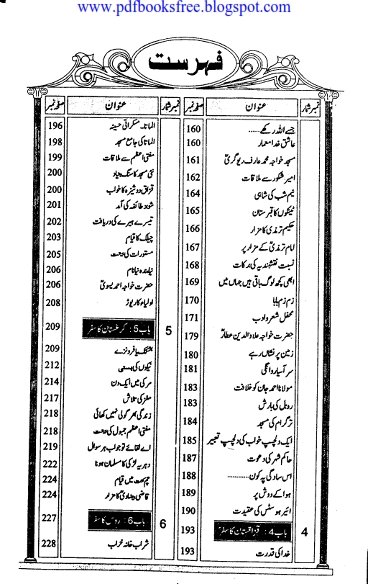 www.pdfbooksfree.blogspot.com
فہرست
نمبر شمار عنوان صفحہ نمبر
جسے اللہ رکھے...... 160
عاشق خدا معمار 160
مسجد خواجہ محمد عارف ریوگری 161
امیر شکور سے ملاقات 162
نیم شب کی شاہی 164
ٹینکوں کا قبرستان 165
حکیم ترمذی کا مزار 166
امام ترمذی کے مزار پر 167
نسبت نقشبندیہ کی برکات 168
ابھی کچھ لوگ باقی ہیں جہاں میں 169
زم زم بابا 170
محفل شعر و ادب 171
حضرت خواجہ علاؤ الدین عطار 179
زمین پر نشاں رہے 180
سر آسیا روانگی 181
مولانا احمد جان کو خلافت 183
روبل کی بارش 183
ترگرام کی مسجد 184
ایک دلچسپ خواب کی دلچسپ تعبیر 185
حاکم شہر کی دعوت 187
اس سادگی پہ کون...... 188
ہوا کے دوش پر 189
ائیر ہوسٹس کی عقیدت 190
4 باب 4: قزاقستان کا سفر 193
خدا کی قدرت 193
نمبر شمار عنوان صفحہ نمبر
الماتا۔ مسکراتی حسینہ 196
الماتا کی جامع مسجد 198
مفتی اعظم سے ملاقات 199
نئی مسجد کا سنگ بنیاد 200
قزاق دوشیزہ کا خواب 200
شوبز طائفہ کی آمد 201
تیسرے ہیرے کی دریافت 202
چمبل کا قیام 203
مستورات کی بیعت 205
206
حضرت خواجہ احمد یسوی 206
اولیاء کا رپوڑ 208
5 باب 5: کرغستان کا سفر 209
بشکک یا فرونزے 209
نیکوں کی بستی 212
مرکی میں ایک دن 214
سفر کی تلاش 217
زندگی بھر گولی نہیں کھائی 218
مفتی اعظم جمبول کی بیعت 218
اے لقائے تو جواب ہر سوال 219
دہریہ لڑکی کا مسلمان ہونا 222
چمبحت میں قیام 224
قاضی بیضاوی کا مزار 224
6 باب 6: روس کا سفر 227
شراب خانہ خراب 228